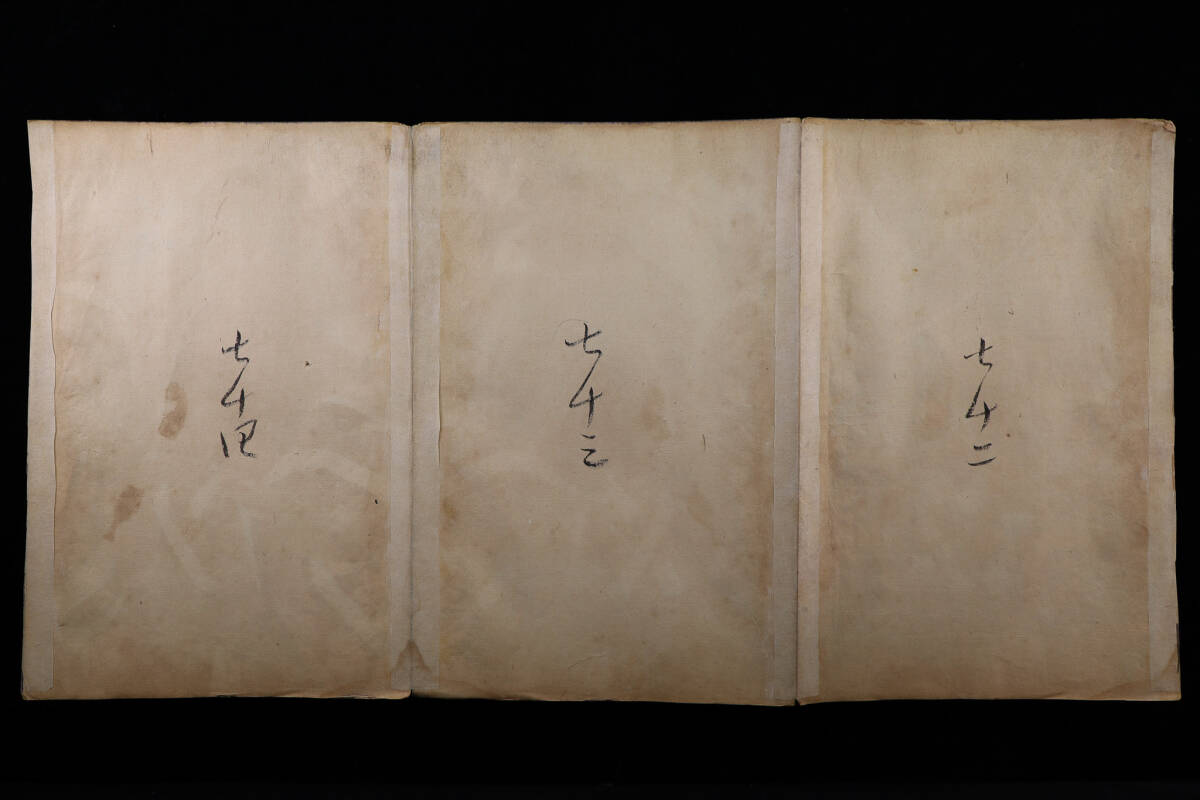 七十二
七十三
七十四